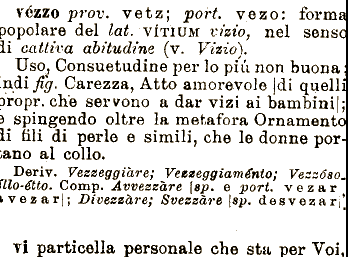 vézzo prov. vetz; port. vezo: forma
popolare del lat. VÍTIUM vizio, nel senso
di cattiva abitudine (v. Vizio).
Uso, Consuetudine per lo piú non buona;
indi fig. Carezza, Atto amorevole |di quelli
propr. che servono a dar vizi ai bambini|;
e spingendo oltre la metafora Ornamento
di fili di perle e simili, che le donne por-
tano al collo.
Deriv. Vezzeggiàre; Vezzeggiaménto; Vezzóso-
íllo-étto. Comp. Avvezzàre |sp. e port. vezar,
avezar|; Divezzàre; Svezzàre |sp. desvezar|.
vi particella personale che sta per Voi,